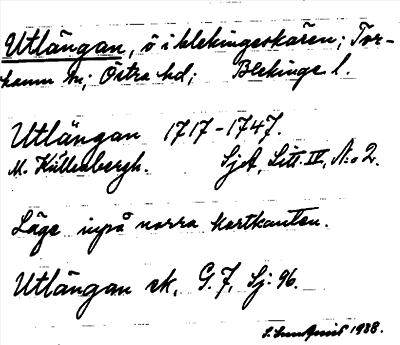 Utlängan, ö i blekingeskären; Tor-
hamn sn; Östra hd; Blekinge l.
Utlängan 1717-1747.
M. Källenbergh. SjA, Litt. IV, N:o 2.
Läge inpå norra kartkanten.
Utlängan ek, G. 7, Sj: 96.
S. Lundquist 1938.